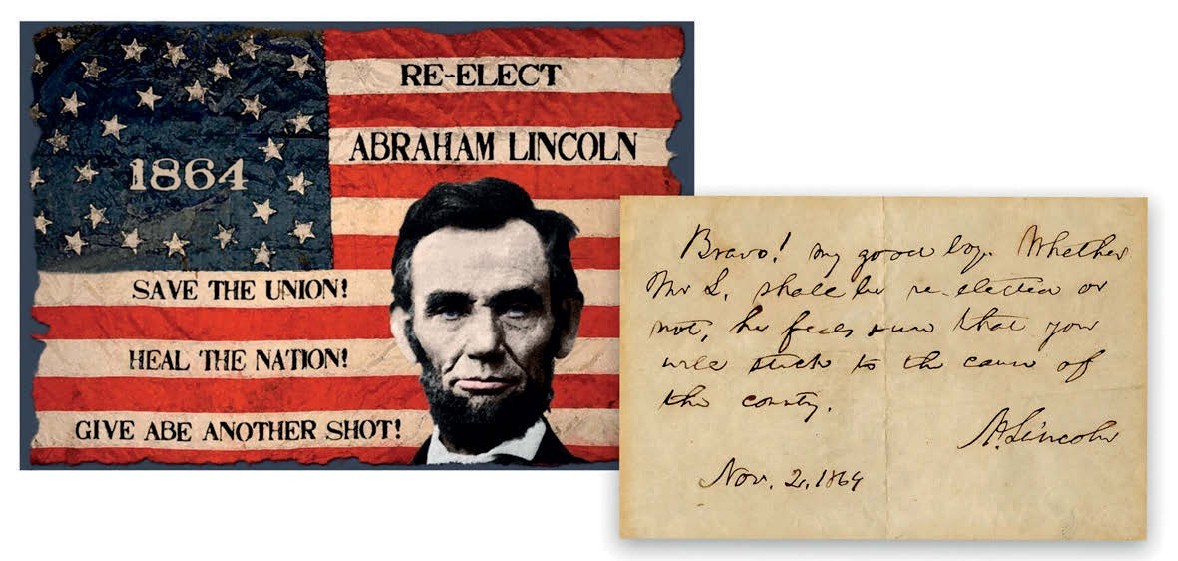 RE-ELECT
ABRAHAM LINCOLN
1864
SAVE THE UNION!
HEAL THE NATION!
GIVE ABE ANOTHER SHOT!
Bravo! my good boy. Whether
Mr L. shall be re-elected or
not, he feels sure that you
will stick to the cause of
the country.
A. Lincoln
Nov. 2, 1864